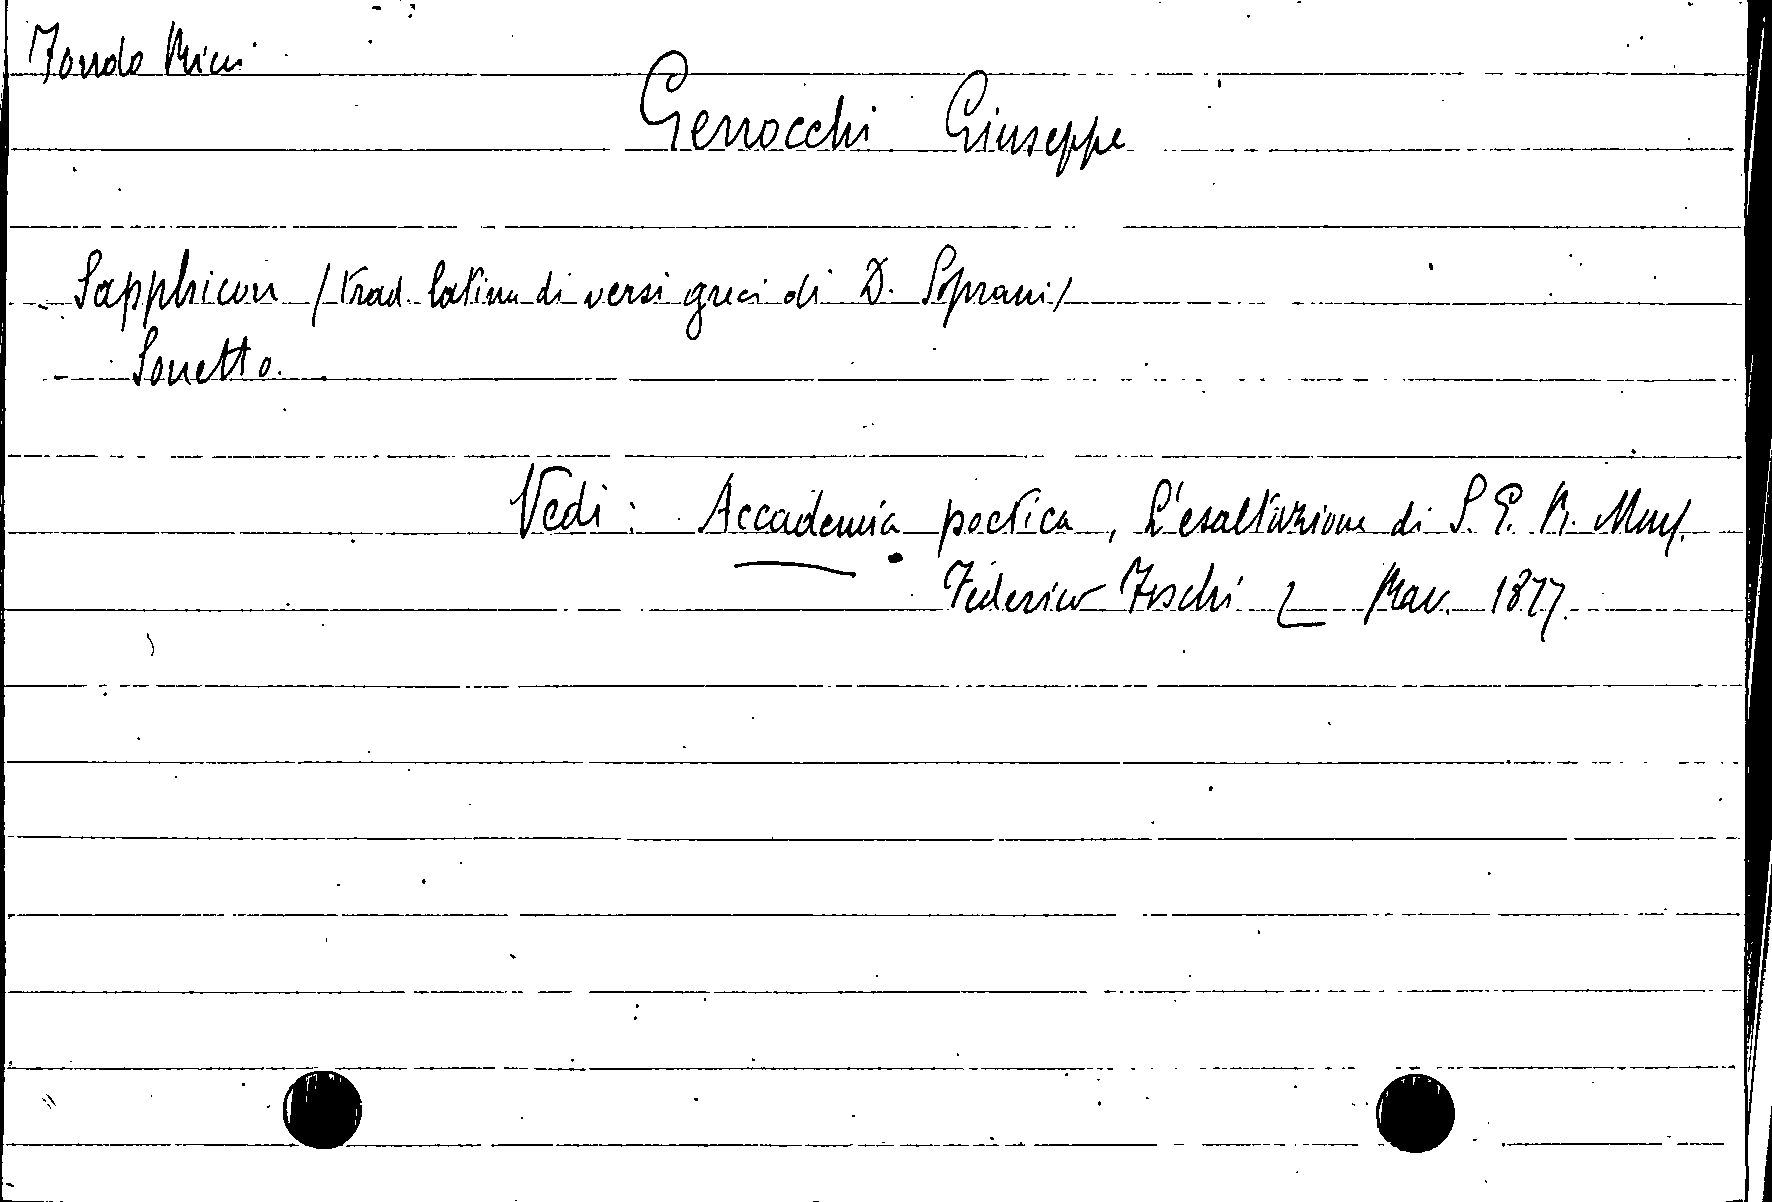 Fondo Ricci
Genocchi Giuseppe
- Sapphicon / trad. latina di versi greci di D. Soprani /
- Sonetto.
Vedi: Accademia poetica, L'esaltazione di S. E. R. Mons.
Federico Foschi Rav. 1877.